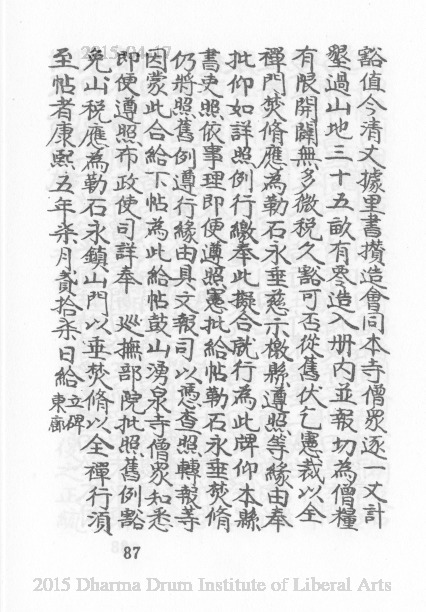 豁值今清丈據里書攢造會同本寺僧眾逐一丈計
墾過山地三十五畝有零造入冊內並報切為僧糧
有限開闢無多微稅久豁可否從舊伏乞憲裁以全
禪門焚脩應為勒石永垂慈示檄縣遵照等緣由奉
批仰如詳照例行繳奉此擬合就行為此牌仰本縣
書吏照依事理即便遵照憲批給帖勒石永垂焚脩
仍將照舊例遵行緣由具文報司以憑查照轉報等
因蒙此合給下帖為此給帖鼓山湧泉寺僧眾知悉
即便遵照布政使司詳奉 巡撫部院批照舊例豁
免山稅應為勒石永鎮山門以垂焚脩以全禪行須
至帖者康熙五年柒月貳拾柒日給立碑東廊
87
2015 Dharma Drum Institute of Liberal Arts